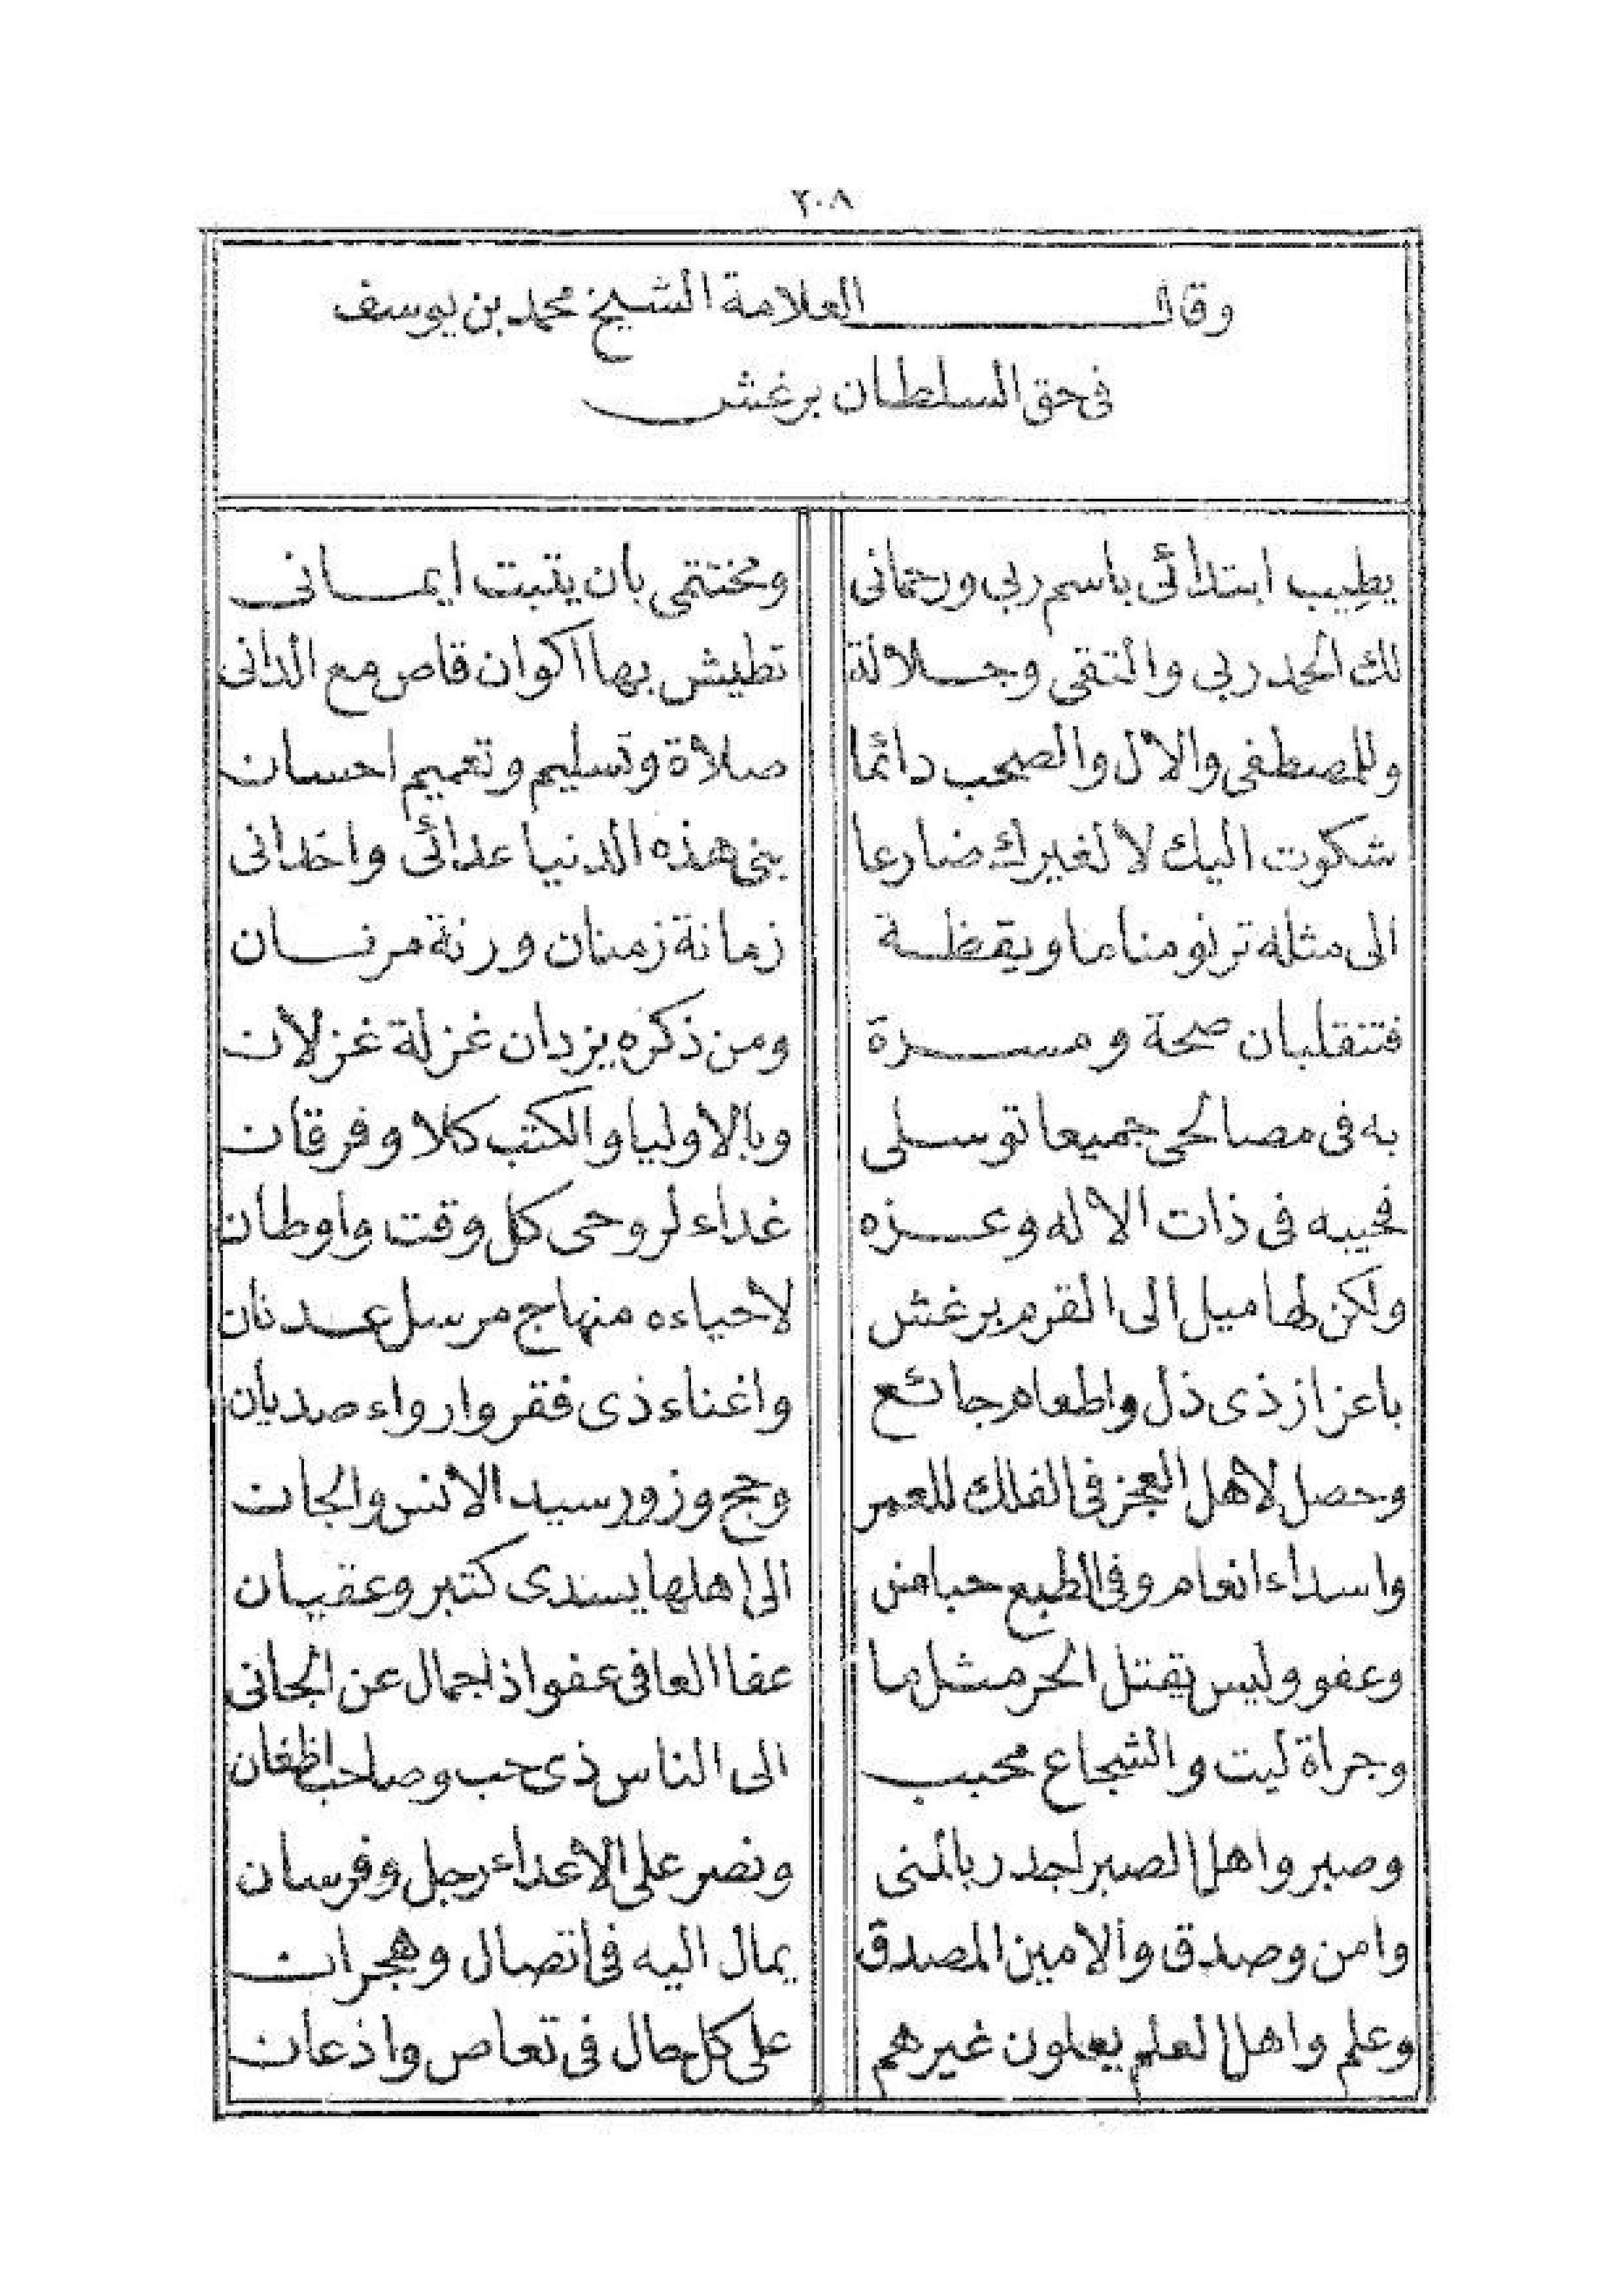 ٢٠٨
وقال العلامة الشيخ محمد بن يوسف
فى حق السلطان برغش
يطيب ابتدائى باسم ربى ورحمانى ومختتمى بان يثبت ايمانى
لك الحمد ربى والتقى وجلالة تطيش بها اكوان قاص مع الدانى
وللمصطفى والال والصحب دائما صلاة وتسليم وتعميم احسان
شكوت اليك لا لغيرك ضارعا بنى هذه الدنيا عدائى واخدانى
الى مثله ترنو مناما ويقظة زمانة زمنان ورنة مرنسان
فتنقلبان صحة ومسرة ومن ذكره يزدان غزلة غزلان
به فى مصالحى جميعا توسلى وبالاوليا والكتب كلا وفرقان
فحيبه فى ذات الاله وعزه غداء لروحى كل وقت واوطان
ولكن لها ميل الى القرم برغش لاحياءه منهاج مرسل عدنان
باعزاز ذى ذل واطعام جائع واغناء ذى فقر وارواء صديان
وحصل لاهل العجز فى الفلك للعمر وحج وزور سيد الانس والجان
واسداء انعام وفى الطبع حب من الى اهلها يسدى كتبر وعقيان
وعفو وليس يقتل الحر مثل ما عفا العافى عفوا ذا جمال عن الجانى
وجراة ليت والشجاع محبب الى الناس ذى حب وصاحب اظغان
وصبر واهل الصبر اجدر بالمنى ونصر على الاعداء رجل وفرسان
وامن وصدق والامين المصدق يمال اليه فى اتصال وهجران
وعلم واهل العلم يعلون غيرهم على كل حال فى تعاص واذعان